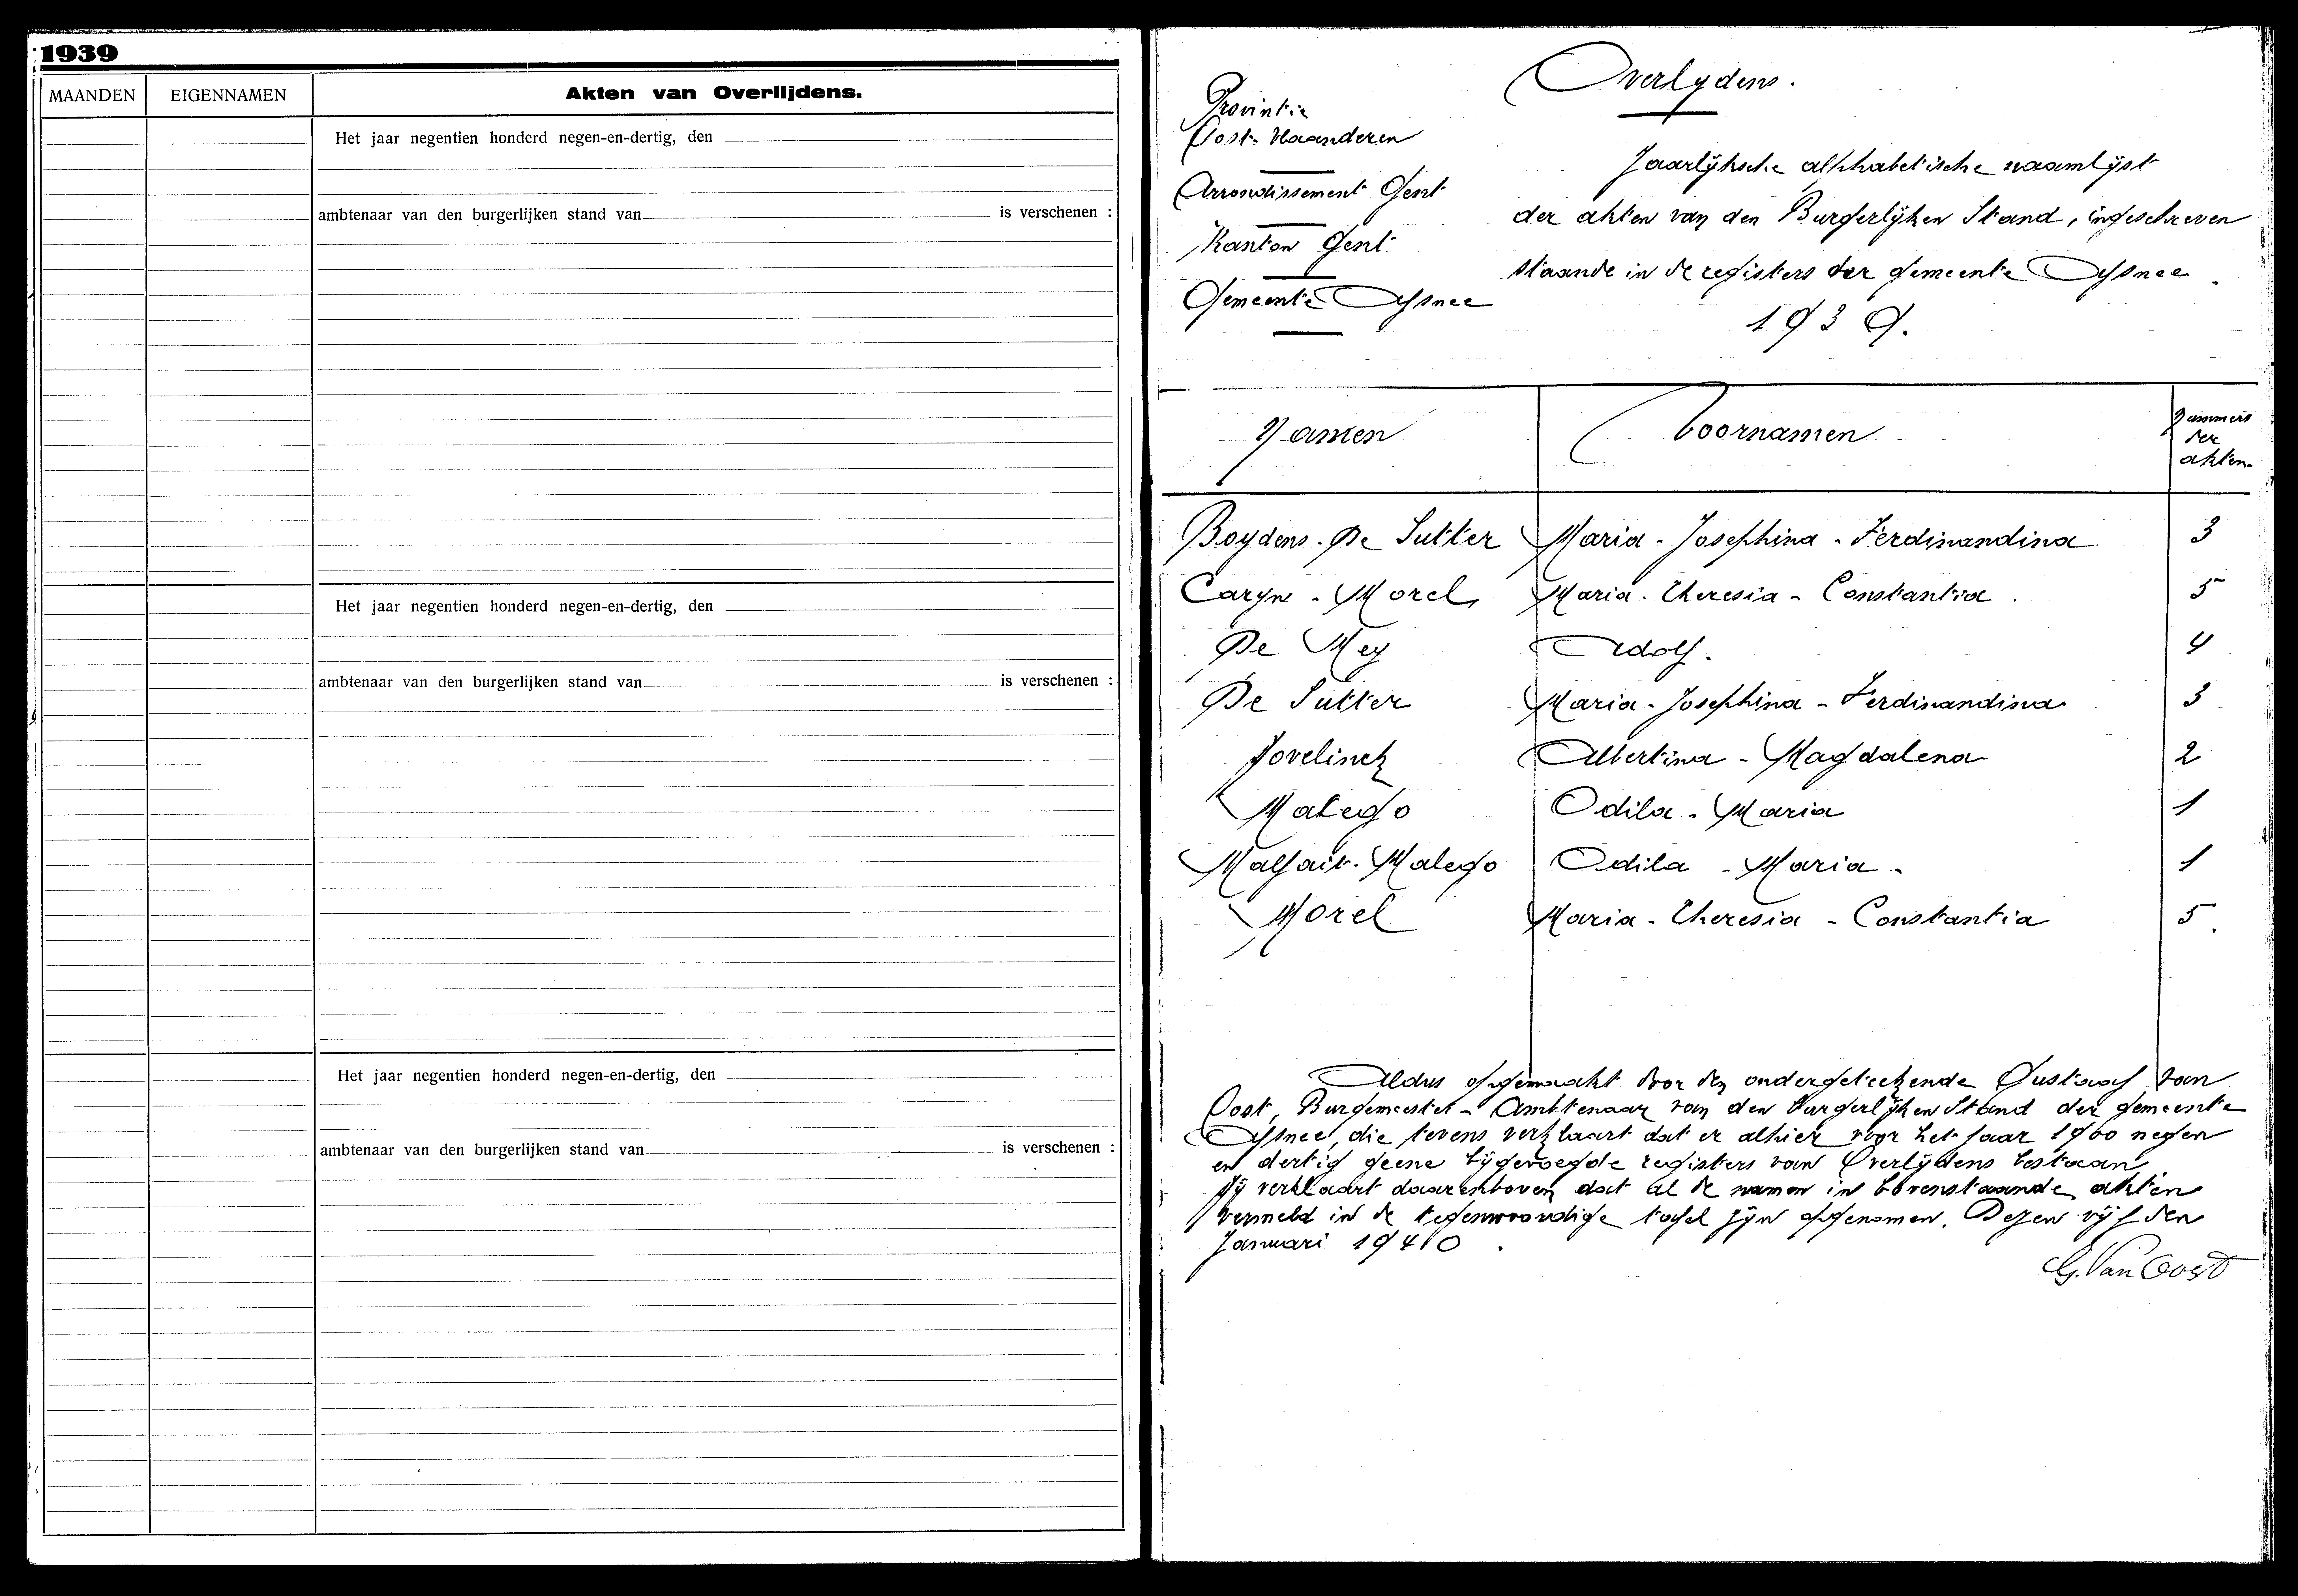 1939
MAANDEN EIGENNAMEN Akten van Overlijdens.
Het jaar negentien honderd negen-en-dertig, den
ambtenaar van den burgerlijken stand van is verschenen :
Het jaar negentien honderd negen-en-dertig, den
ambtenaar van den burgerlijken stand van is verschenen :
Het jaar negentien honderd negen-en-dertig, den
ambtenaar van den burgerlijken stand van is verschenen :
Overlydens.
Provintie
Oost-Vlaanderen
Arrondissement Gent
Kanton Gent
Gemeente Afsnee
Jaarlijksche alphabetische naamlijst
der akten van den Burgerlijken Stand, ingeschreven
staande in de registers der gemeente Afsnee
1939.
Namen Voornamen Nummers der akten
Boydens. De Sutter Maria - Josephina - Ferdinandina 3
Caryn - Morel Maria - Theresia - Constantia . 5
De Mey Adolf. 4
De Sutter Maria - Josephina - Ferdinandina 3
Jovelinck Albertina - Magdalena 2
Malego Odila - Maria 1
Malfait - Malego Odila - Maria - 1
Morel Maria - Theresia - Constantia 5.
Aldus opgemaakt door den ondergeteekende Gustaaf Van
Oost, Burgemeester - Ambtenaar van den burgerlijken Stand der gemeente
Afsnee, die tevens verklaart dat er alhier voor het jaar 1900 negen
en dertig geene bijgevoegde registers van Overlijdens bestaan.
Hij verklaart daarenboven dat al de namen in bovenstaande akten
vermeld in de tegenwoordige tafel zijn opgenomen. Dezen vijfden
Januari 1940.
G. Van Oost